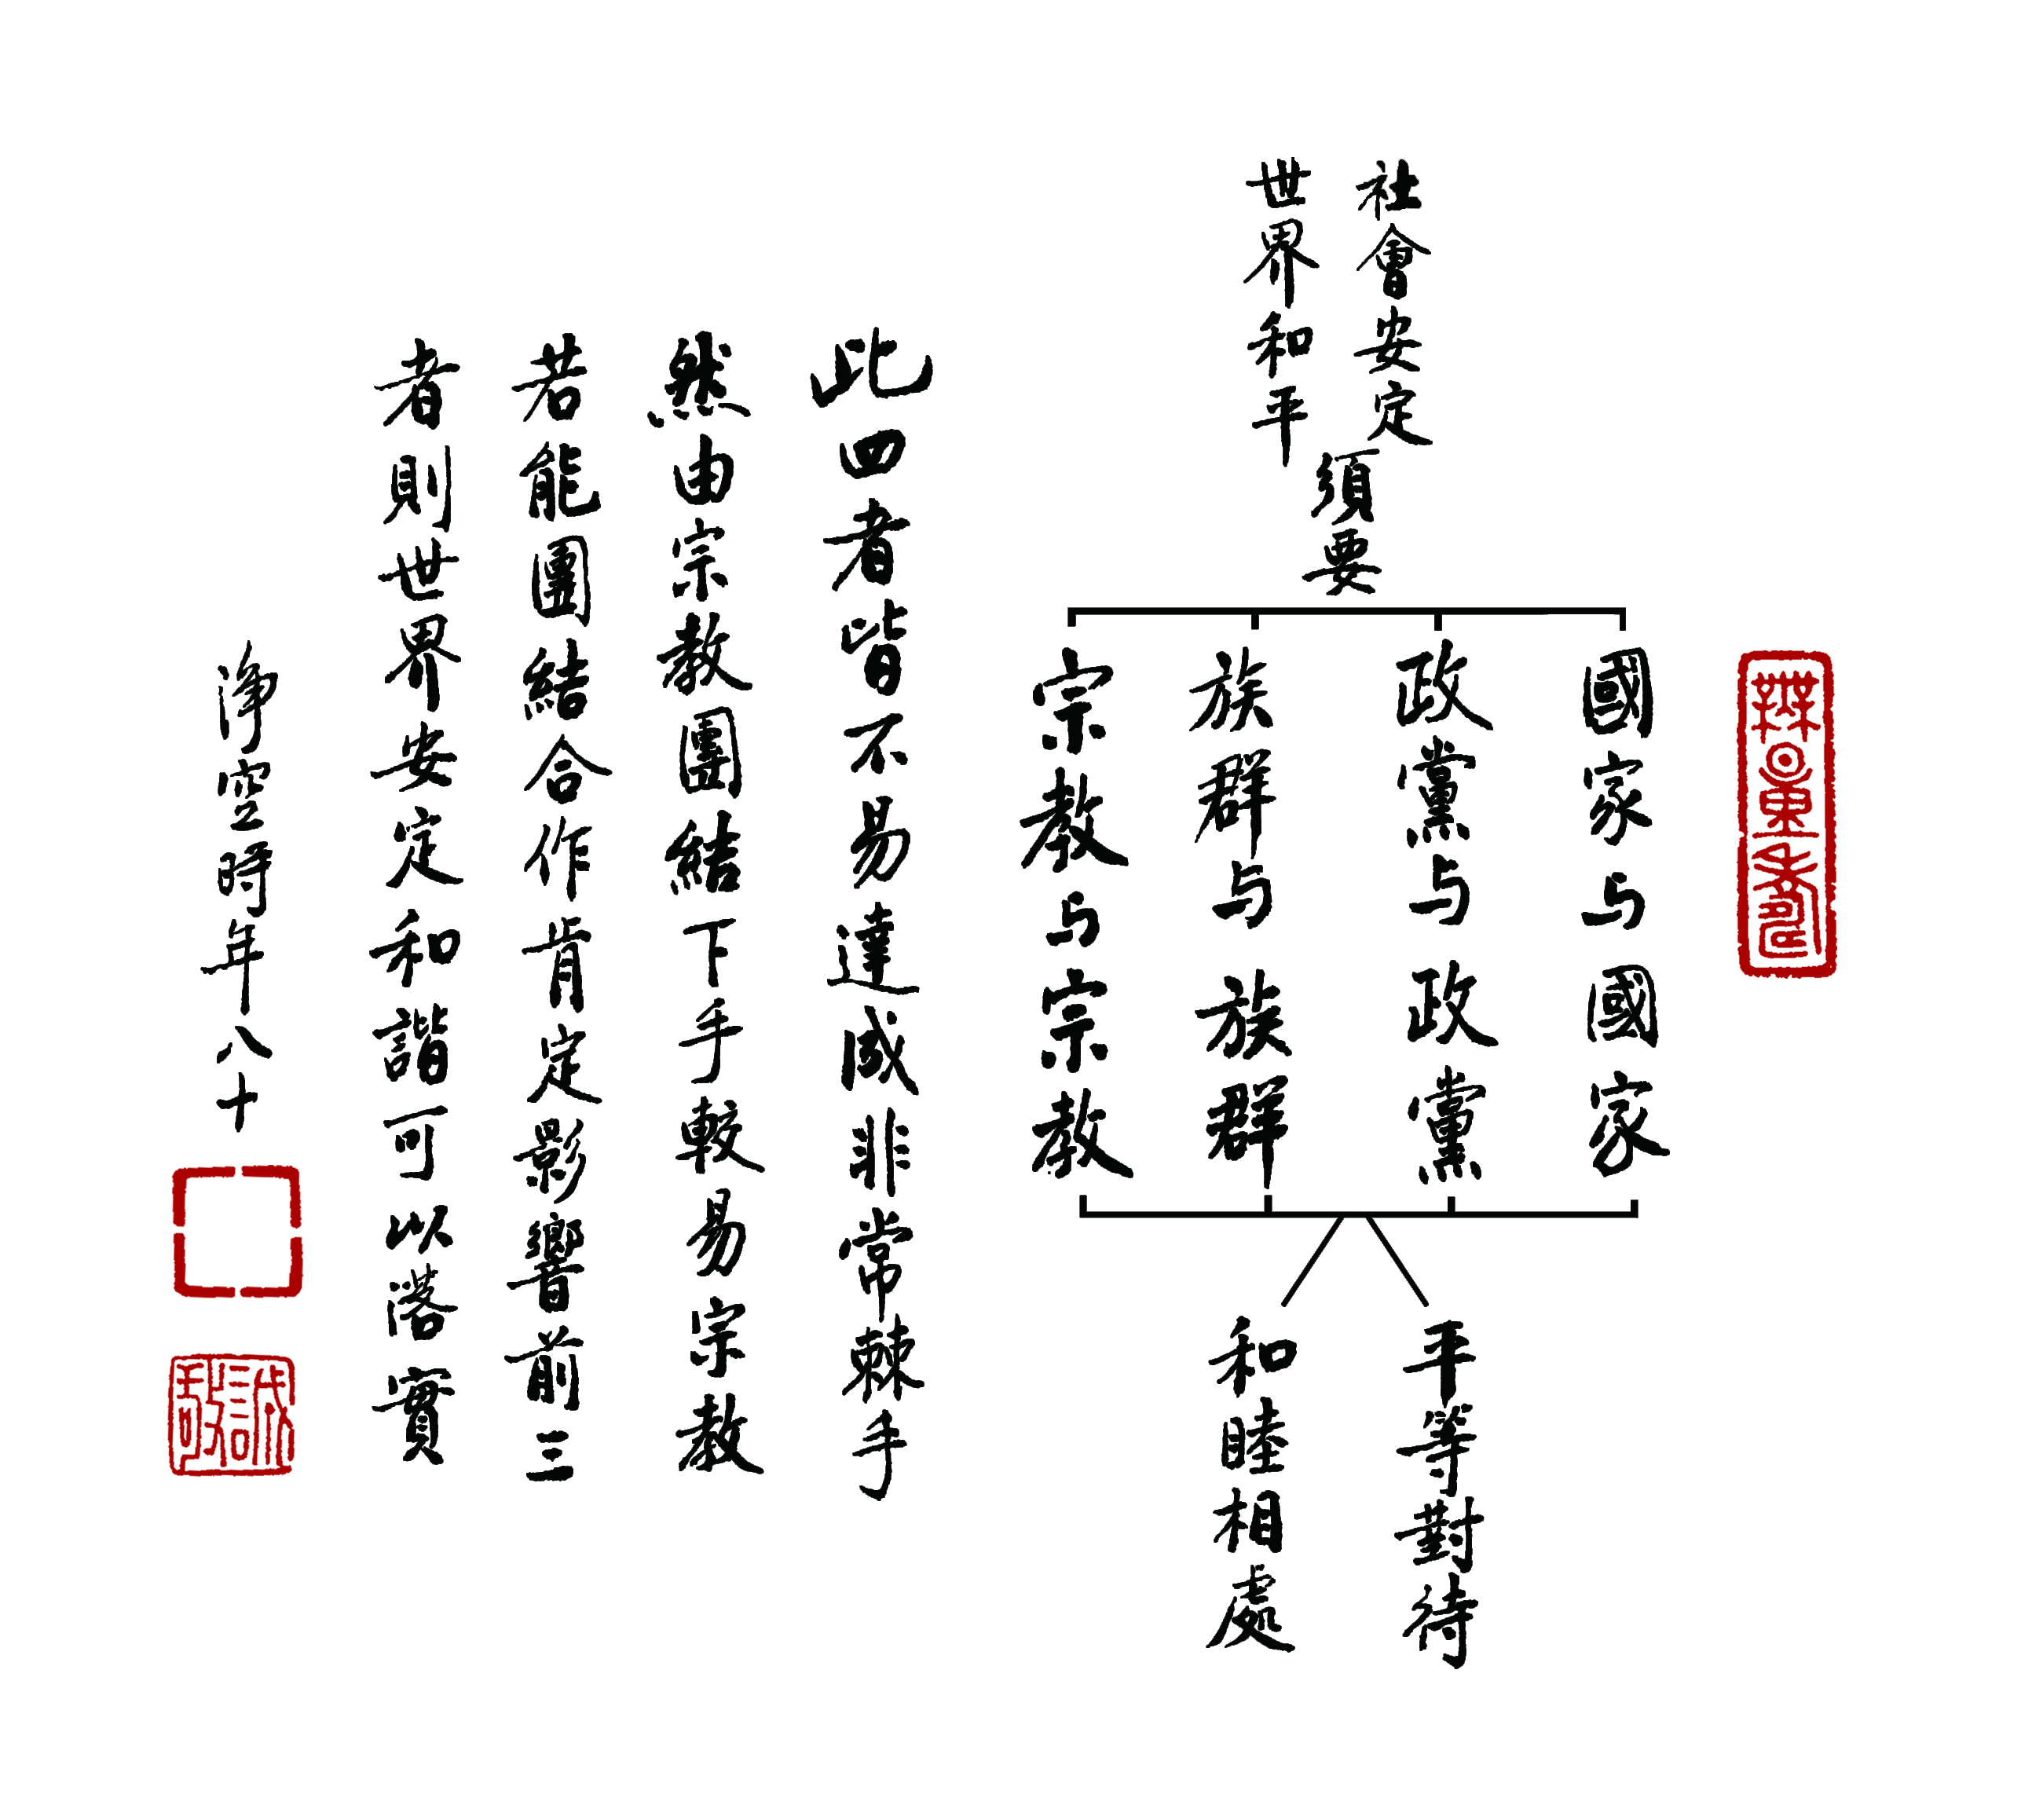 無量壽
社會安定
世界和平
須要
國家与國家
政黨与政黨
族群与族群
宗教与宗教
平等對待
和睦相處
此四者皆不易達成非常棘手
然由宗教團結下手較易宗教
若能團結合作肯定影響前三
者則世界安定和諧可以落實
淨空時年八十
誠敬